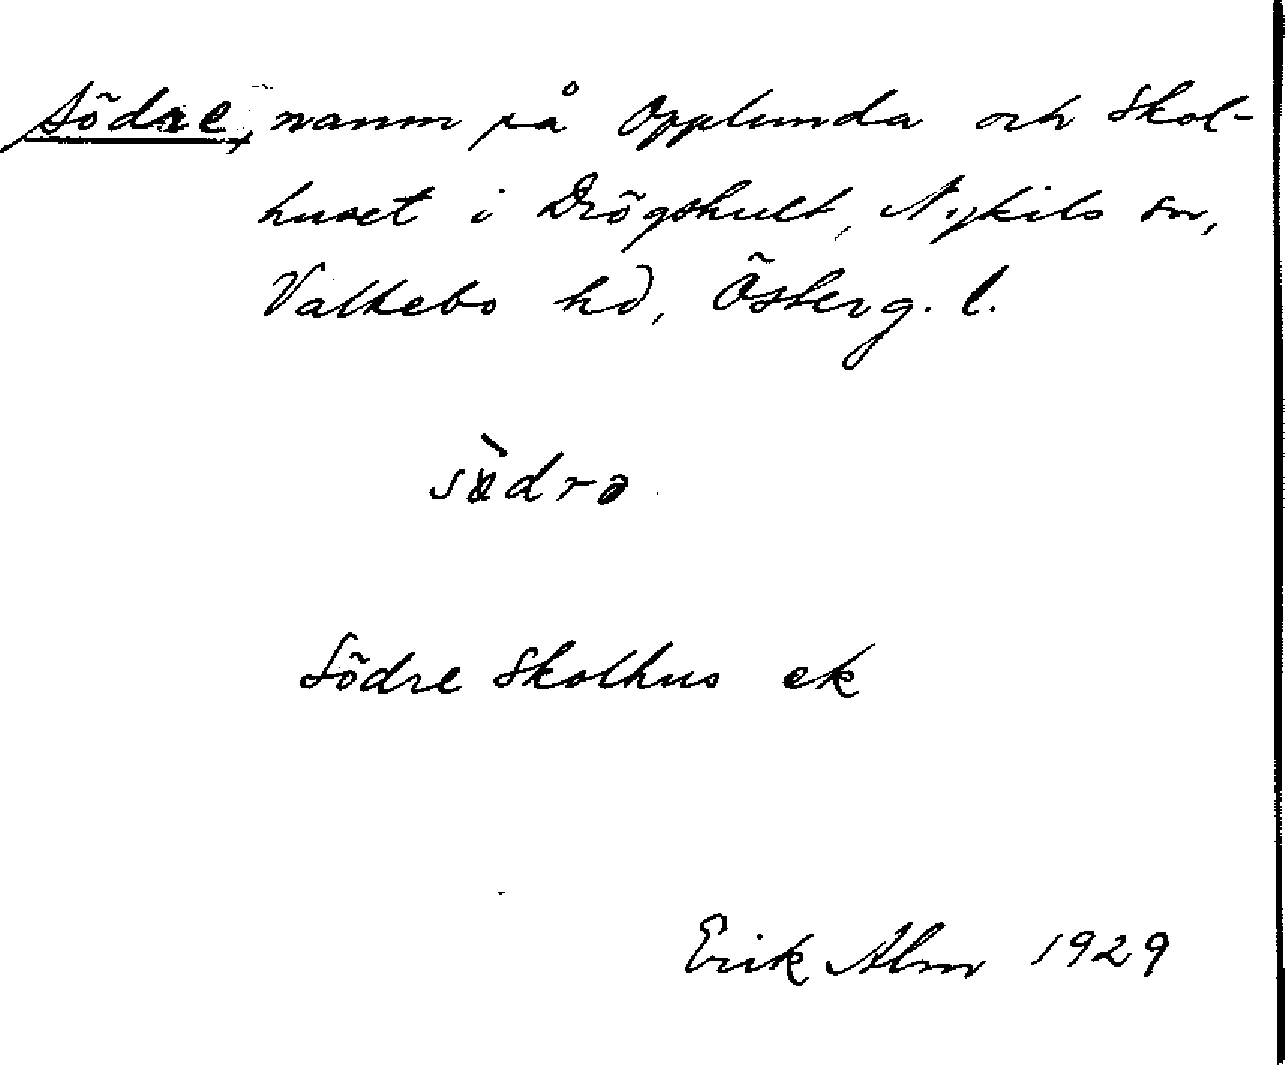 Södre, namn på Opplunda och Skol-
huset i Drögshult, Nykils sn,
Valkebo hd, Österg. l.
sö̀drə
Södre Skolhus ek
Erik Alm 1929